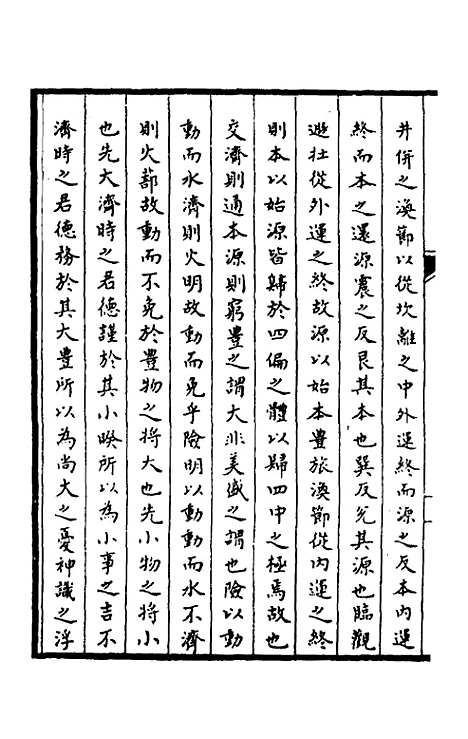 井併之渙節以從坎離之中外運終而源之反本內運
終而本之還源震之反艮其本也巽反兌其源也臨觀
遯壯從外運之終故源以始本豊旅渙節從內運之終
則本以始源皆歸於四偏之體以歸四中之極焉故也
交濟則通本源則窮豊之謂大非美盛之謂也險以動
動而水濟則火明故動而免乎險明以動動而水不濟
則火蔀故動而不免於豊物之將大也先小物之將小
也先大濟時之君德謹於其小暌所以為小事之吉不
濟時之君德務於其大豊所以為尚大之憂神識之浮